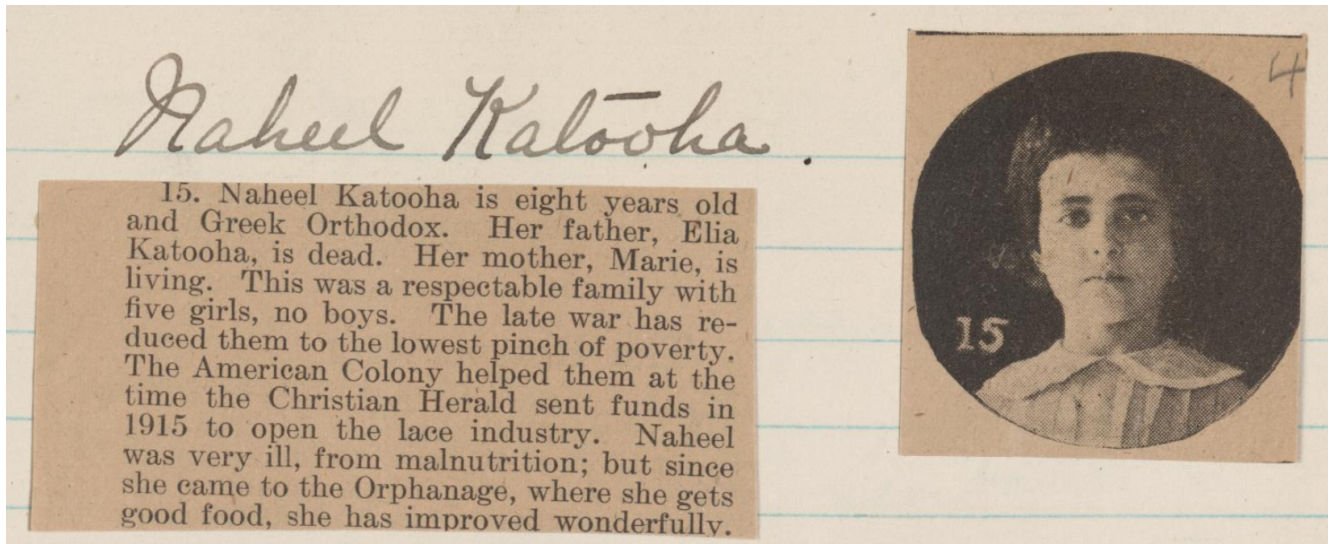 Naheel Katōoha.
4
15. Naheel Katooha is eight years old
and Greek Orthodox. Her father, Elia
Katooha, is dead. Her mother, Marie, is
living. This was a respectable family with
five girls, no boys. The late war has re-
duced them to the lowest pinch of poverty.
The American Colony helped them at the
time the Christian Herald sent funds in
1915 to open the lace industry. Naheel
was very ill, from malnutrition; but since
she came to the Orphanage, where she gets
good food, she has improved wonderfully.
15